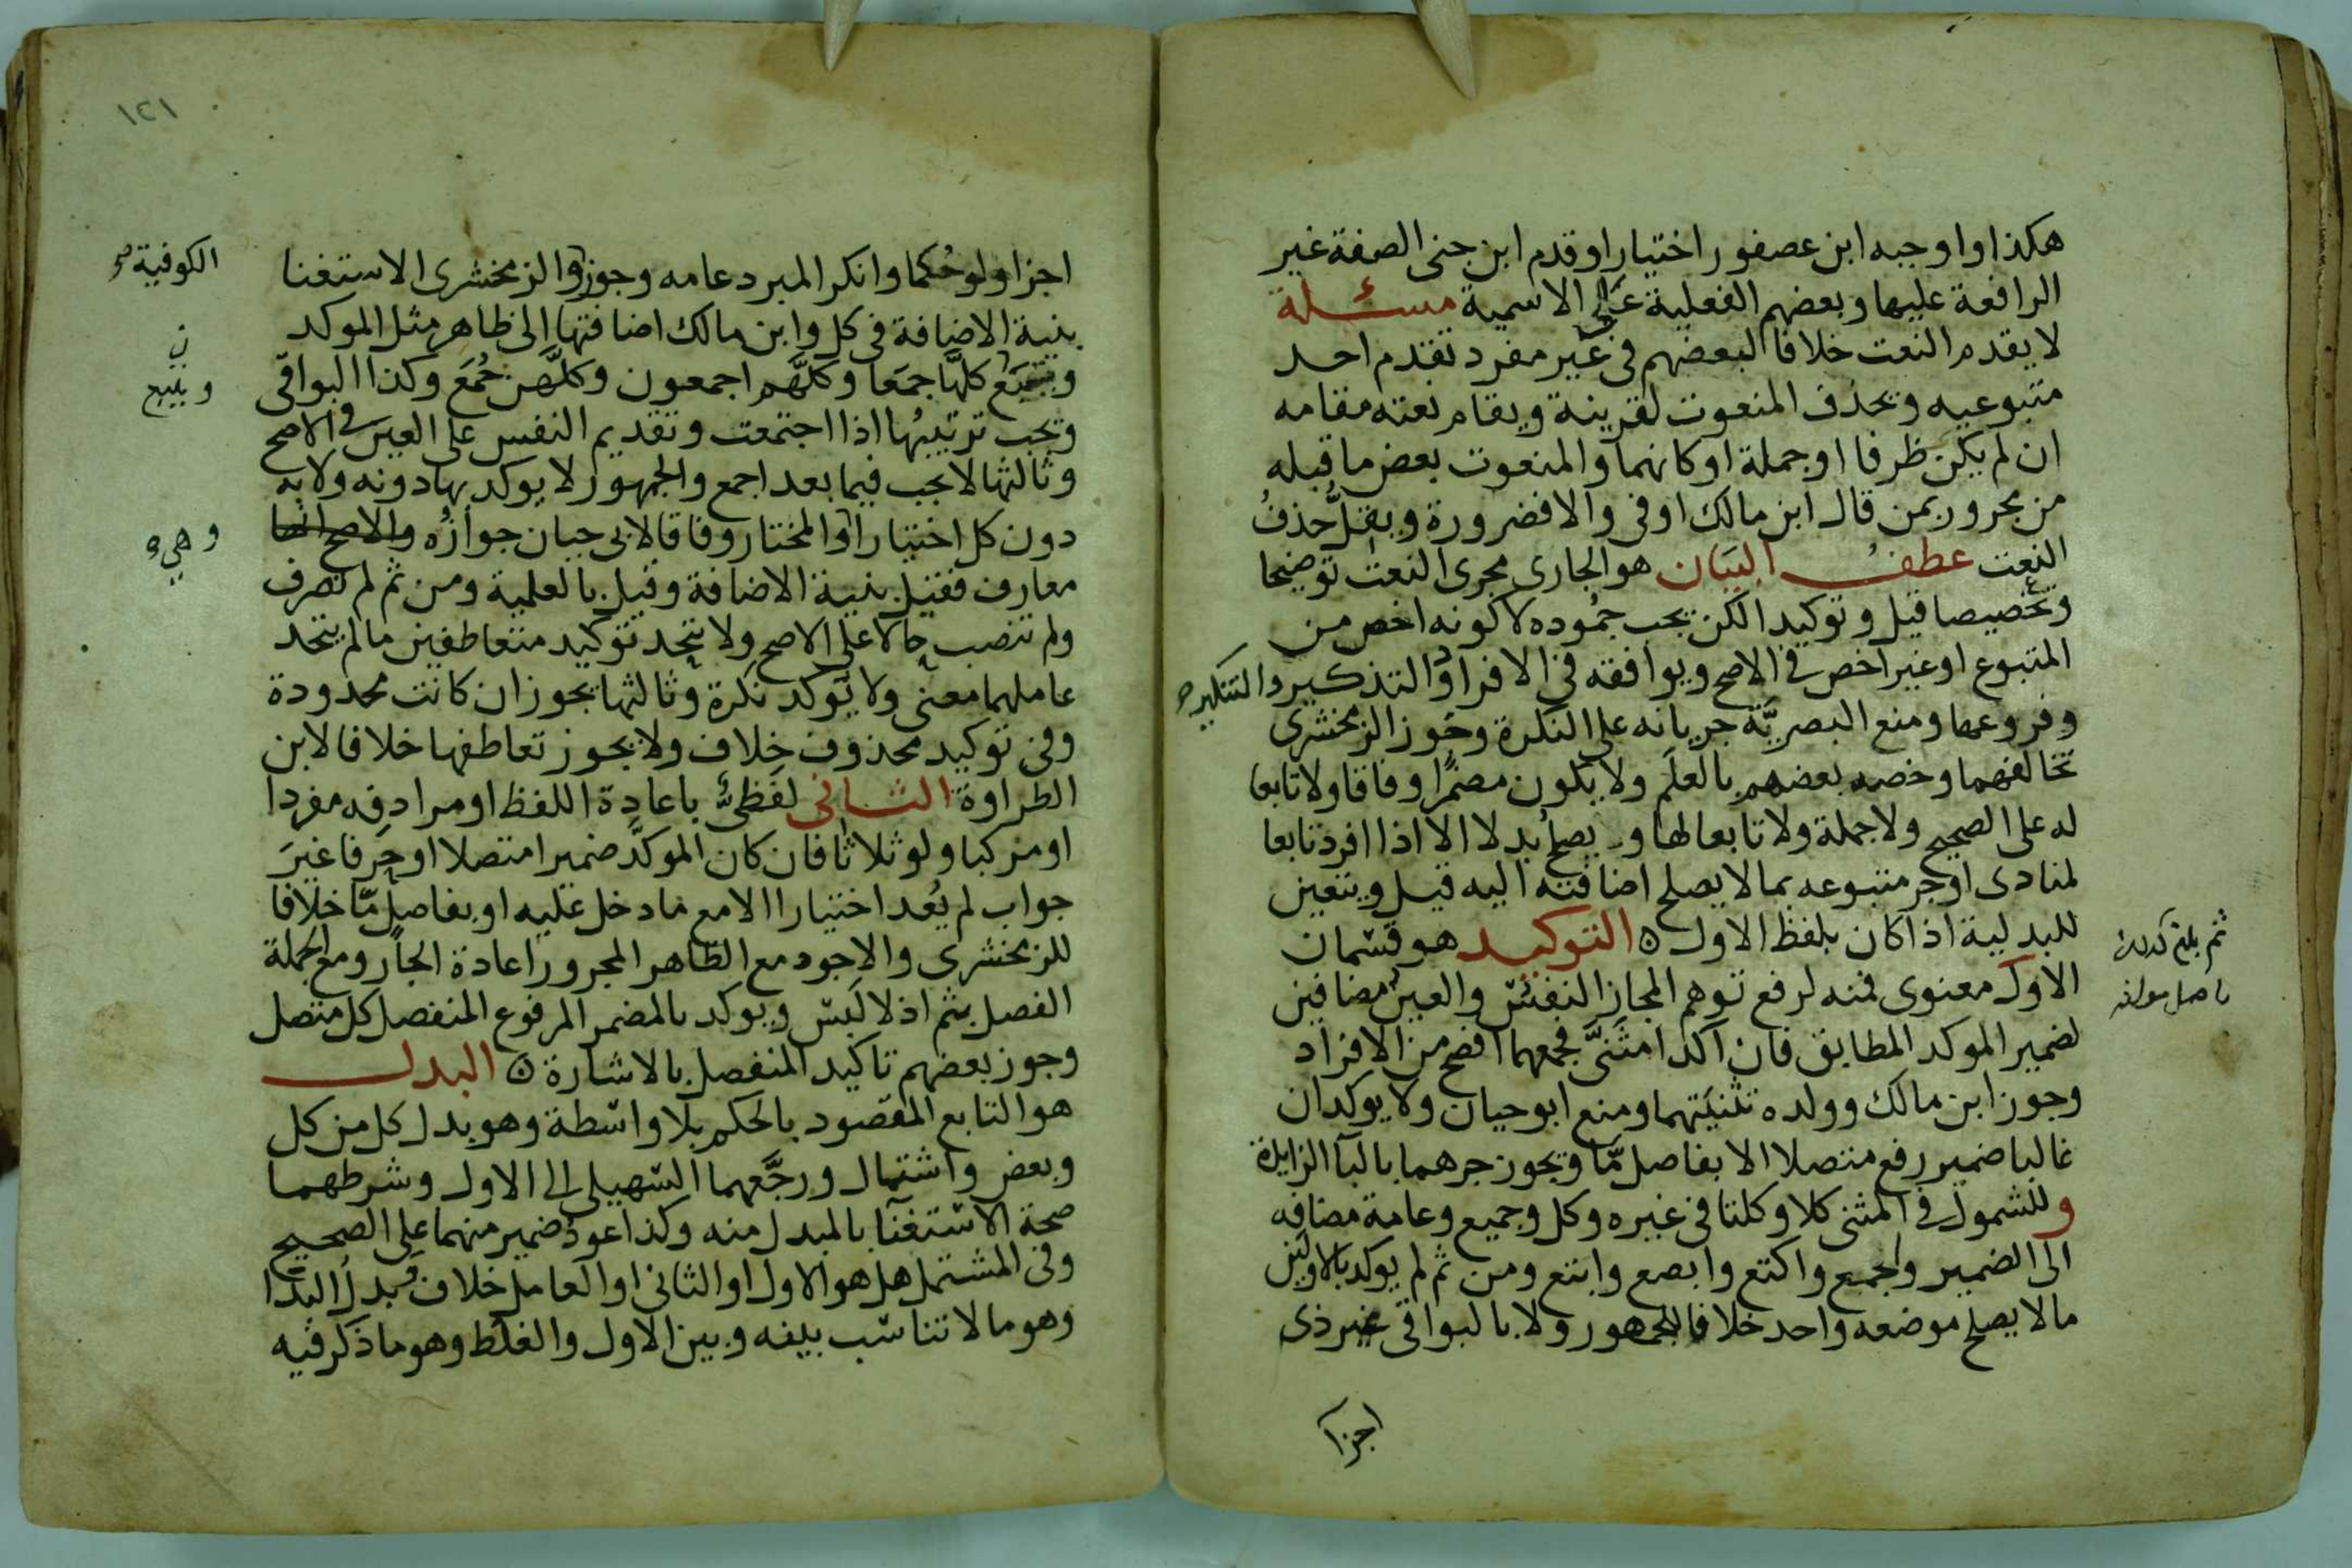 هكذا واوجبه ابن عصفور اختيارا وقدم ابن جنى الصفة غير
الرافعة عليها وبعضهم الفعلية على الاسمية مسئلة
لا يقدم النعت خلافا لبعضهم فى غير مفرد تقدم احد
متبوعيه ويحذف المنعوت لقرينة ويقام نعته مقامه
ان لم يكن ظرفا او جملة او كانهما والمنعوت بعض ما قبله
من مجرور بمن قال ابن مالك اوفى والا فضرورة ويقلّ حذفُ
النعت عطف البيَان هو الجارى مجرى النعت توضيحا
وتخصيصا قيل وتوكيدا لكن يجب جمُوده لا كونه اخص من
المتبوع او غير اخص فى الاصح ويوافقه فى الافراد والتذكير والتنكير صح
وفروعها ومنع البصريَّة جريانه على النكرة وجَوز الزمخشرى
تخالفهما وخصه بعضهم بالعلَم ولا يكون مضمرًا وفاقا ولا تابعا
له على الصحيح ولا جملة ولا تابعا لها و يصلح بدلا الا اذا افرد تابعا
لمنادى او جر متبوعه بما لا يصلح اضافته اليه قيل ويتعين
للبدلية اذا كان بلفظ الاول ٥ التوكيد هو قسمان
الاول معنوى فمنه لرفع توهم المجاز النفس والعين مضافين
لضمير الموكد المطابق فان اكدا مثنَىَّ فجمعهما افصح من الافراد
وجوز ابن مالك وولده تثنيَتهما ومنع ابو حيان ولا يوكدان
غالبا ضمير رفع متصلا الا بفاصل مّا ويجوز جرهما بالبآ الزايدة
وللشمول فى المثنى كلا وكلتا فى غيره وكل وجميع وعامة مضافه
الى الضمير واجمع واكتع وابصع وابتع ومن ثم لم يوكد بالاولين
مالا يصلح موضعه واحد خلافا للجمهور ولا بالبواقى غير ذى
اجزا
ثم بلغ
١٢١
اجزا ولو حُكما وانكر المبرد عامه وجوز والزمخشرى الاستغنا
الكوفية صح
بنية الاضافة فى كل وابن مالك اضافتها الى ظاهر مثل الموكد
ويتبَع كلَّها جمعا وكلَّهم اجمعون وكلَّهن جُمَع وكذا البواقى
ن
ويتبع
ويجب ترتيبُها اذا اجتمعت وتقديم النفس على العين فى الاصح
وثالثها لا يجب فيما بعد اجمع والجمهور لا يوكد بها دونه ولا به
دون كل اختيارا والمختار وفاقا لابى حيان جوازُه والاصح انها
وهى
معارف فقيل بنية الاضافة وقيل بالعلمية ومن ثم لم تصرف
ولم تنصب حالا على الاصح ولا يتحد توكيد متعاطفين مالم يتحد
عاملهما معنى ولا يَوكد نكرة وثالثها يجوز ان كانت محدودة
وفى توكيد محذوف خلاف ولا يجوز تعاطفها خلافا لابن
الطراوة الثانى لفظىٌّ باعادة اللفظ او مرادفه مفردا
او مركبا ولو ثلاثا فان كان الموكَّد ضميرا متصلا او حرفا غيرَ
جواب لم يُعد اختيارا الا مع ما دخل عليه او بفاصل مّا خلافا
للزمخشرى والاجود مع الظاهر المجرور اعادة الجار ومع الجملة
الفصل بثم اذ لا لَبْسَ ويوكد بالمضمر المرفوع المنفصل كل متصل
وجوز بعضهم تاكيد المنفصل بالاشارة ٥ البدل
هو التابع المقصود بالحكم بلا واسطة وهو بدل كل من كل
وبعض واشتمال ورجَّعهما السّهيلى الى الاول وشرطهما
صحة الاستغنآ بالمبدل منه وكذا عودُ ضمير منهما على الصحيح
وفى المشتمل هل هو الاول او الثانى او العامل خلاف وبدلُ البدا
وهو مالا تناسُب بينه وبين الاول والغلط وهو ما ذكر فيه